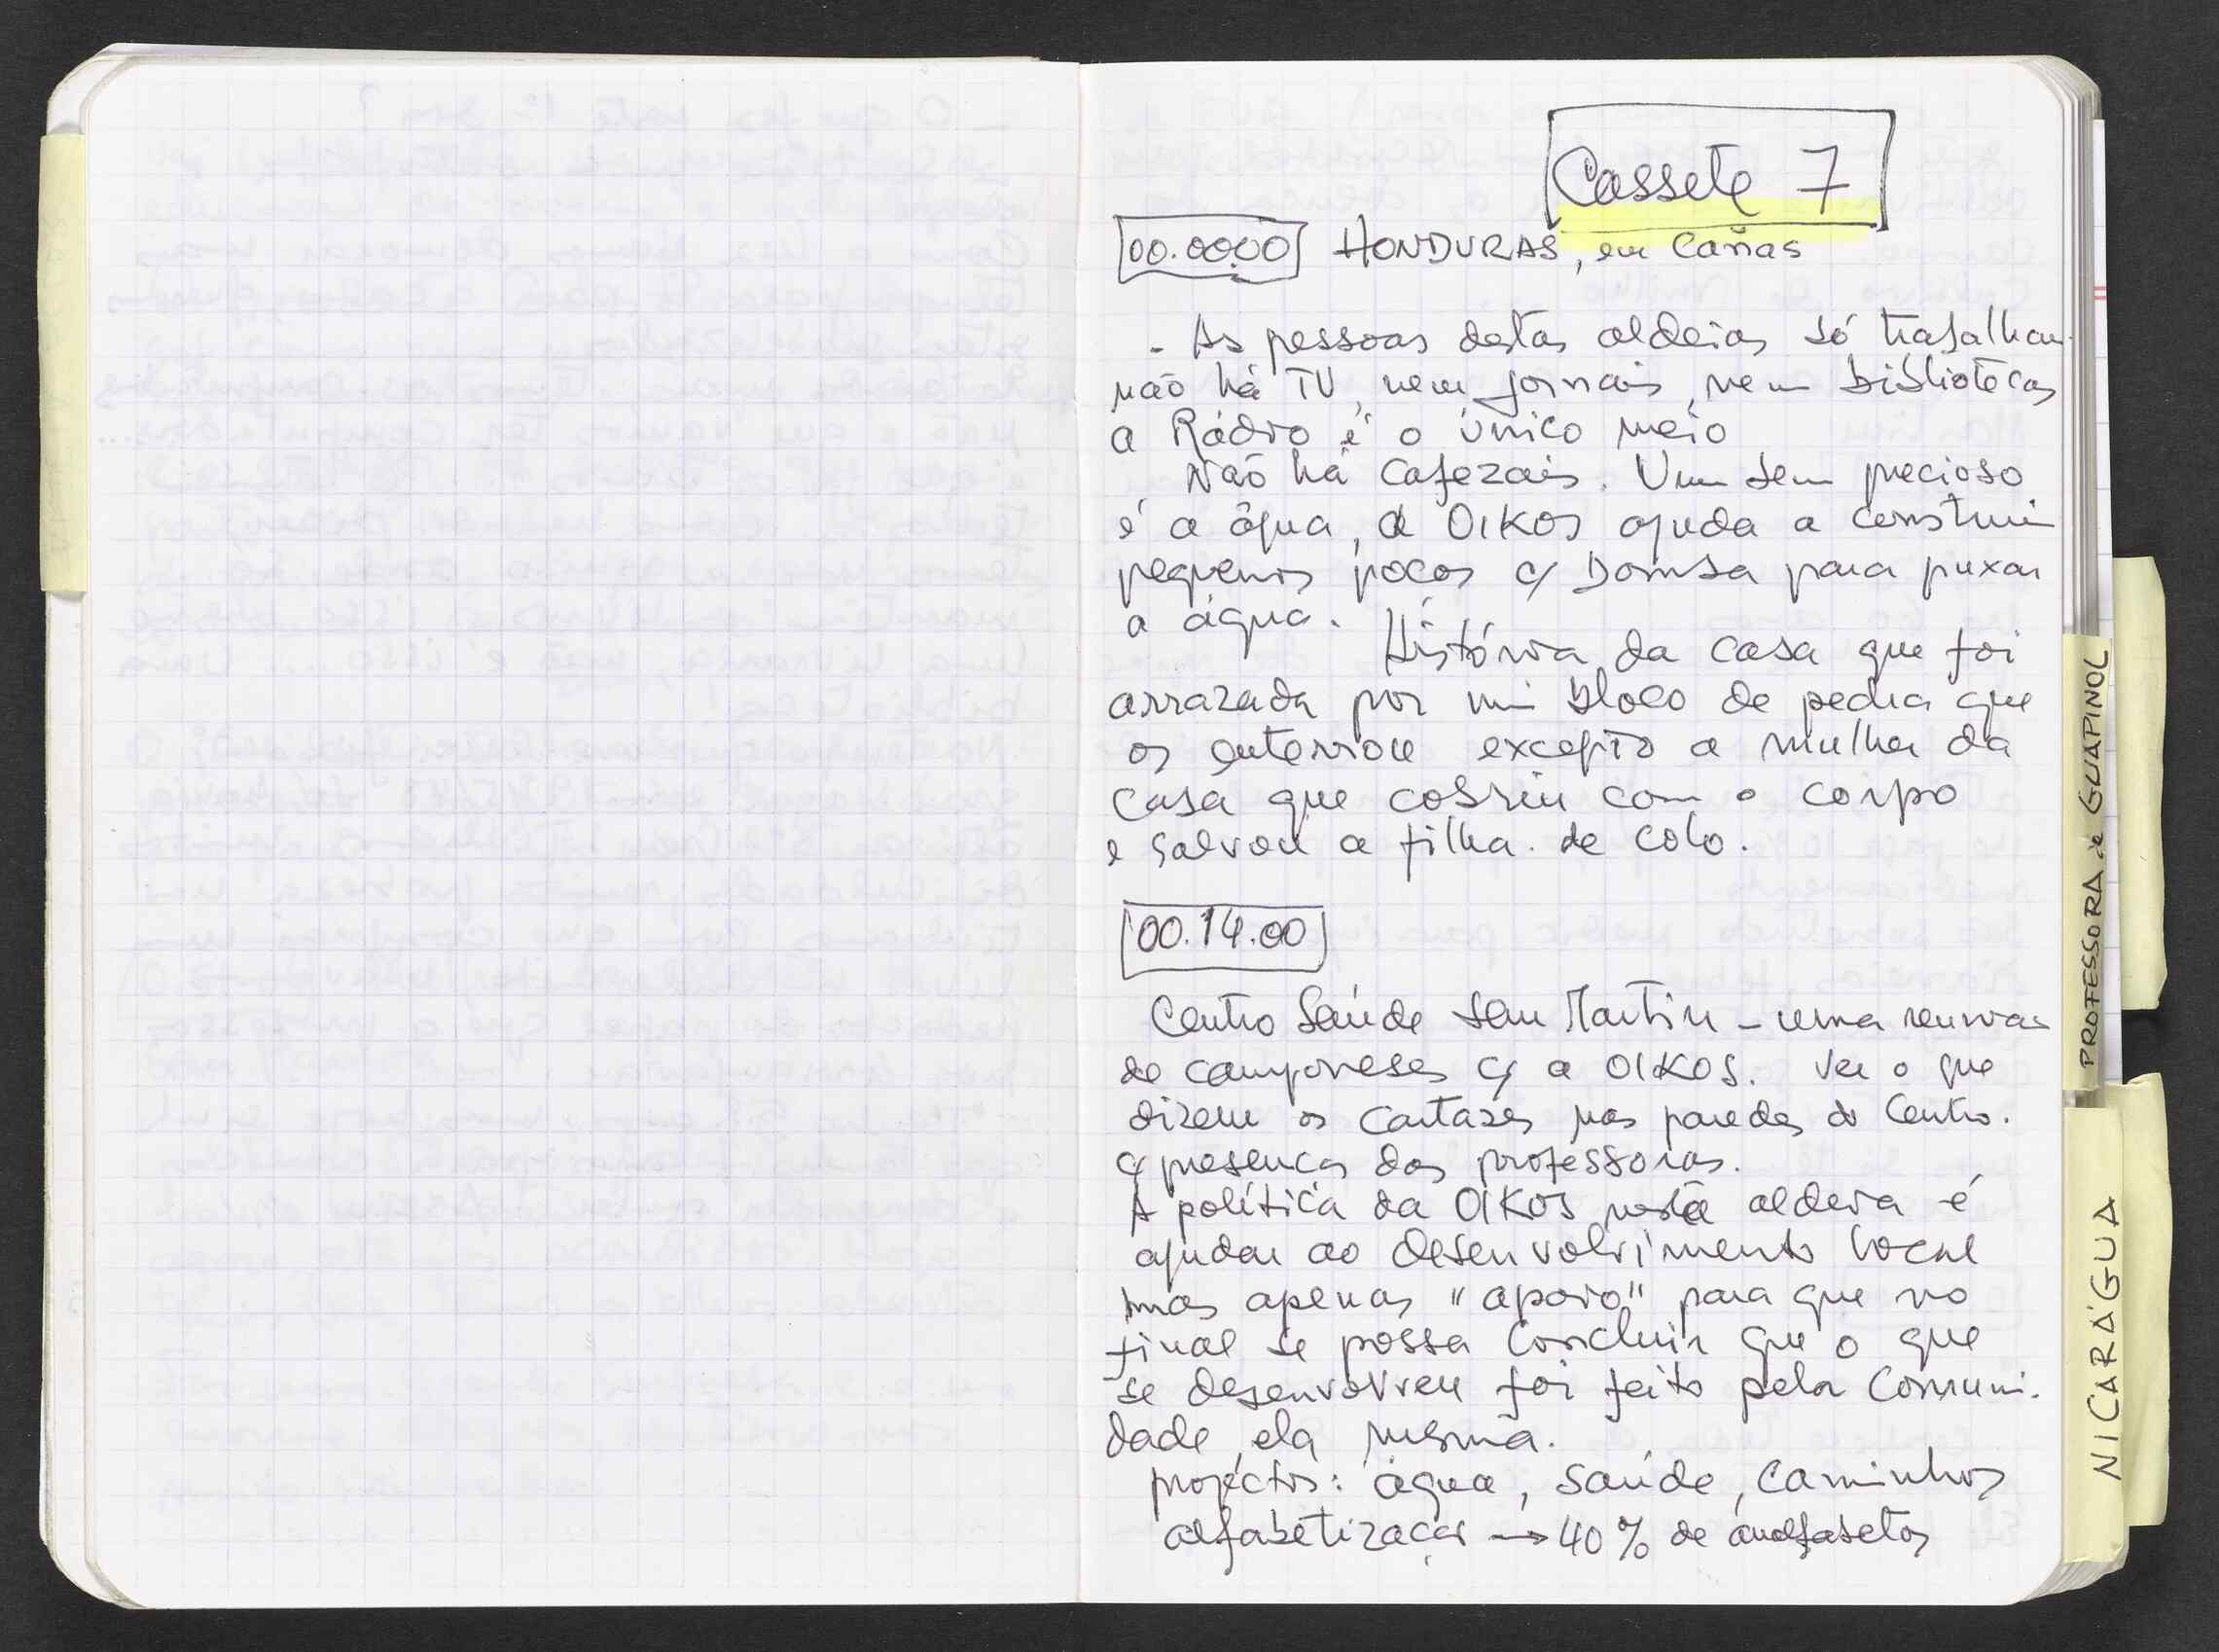 Cassete 7
00.00.00 HONDURAS, em Cañas
- As pessoas destas aldeias só trabalham
não há TV, nem jornais, nem bibliotecas
a Rádio é o único meio
Não há cafezais. Um bem precioso
é a água, a OIKOS ajuda a construir
pequenos poços c/ bomba para puxar
a água.
História da casa que foi
arrazada por um bloco de pedra que
os enterrou excepto a mulher da
casa que cobriu com o corpo
e salvou a filha de colo.
00.14.00
Centro Saúde San Martin - uma reunião
de camponeses c/ a OIKOS. Ver o que
dizem os cartazes nas paredes do Centro.
c/ presença das professoras.
A política da OIKOS nesta aldeia é
ajudar ao desenvolvimento local
mas apenas "apoio" para que no
final se possa concluir que o que
se desenvolveu foi feito pela Comuni-
dade, ela mesma.
projectos: água, saúde, caminhos
alfabetização → 40% de analfabetos
PROFESSORA de GUAPINOL
NICARÁGUA